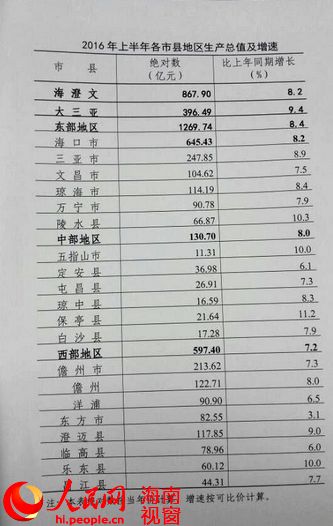 2016年上半年各市县地区生产总值及增速
市 县 绝对数(亿元) 比上年同期增长(%)
海澄文 867.90 8.2
大三亚 396.49 9.4
东部地区 1269.74 8.4
海口市 645.43 8.2
三亚市 247.85 8.9
文昌市 104.62 7.5
琼海市 114.19 8.4
万宁市 90.78 7.9
陵水县 66.87 10.3
中部地区 130.70 8.0
五指山市 11.31 10.0
定安县 36.98 6.1
屯昌县 26.91 7.3
琼中县 16.59 8.3
保亭县 21.64 11.2
白沙县 17.28 7.9
西部地区 597.40 7.2
儋州市 213.62 7.3
儋州 122.71 8.0
洋浦 90.90 6.5
东方市 82.55 3.1
澄迈县 117.85 9.0
临高县 78.96 6.0
乐东县 60.12 10.0
江县 44.31 7.7
注：本表绝对数按当年价计算，增速按可比价计算。
人民网 海南视窗
hi.people.cn